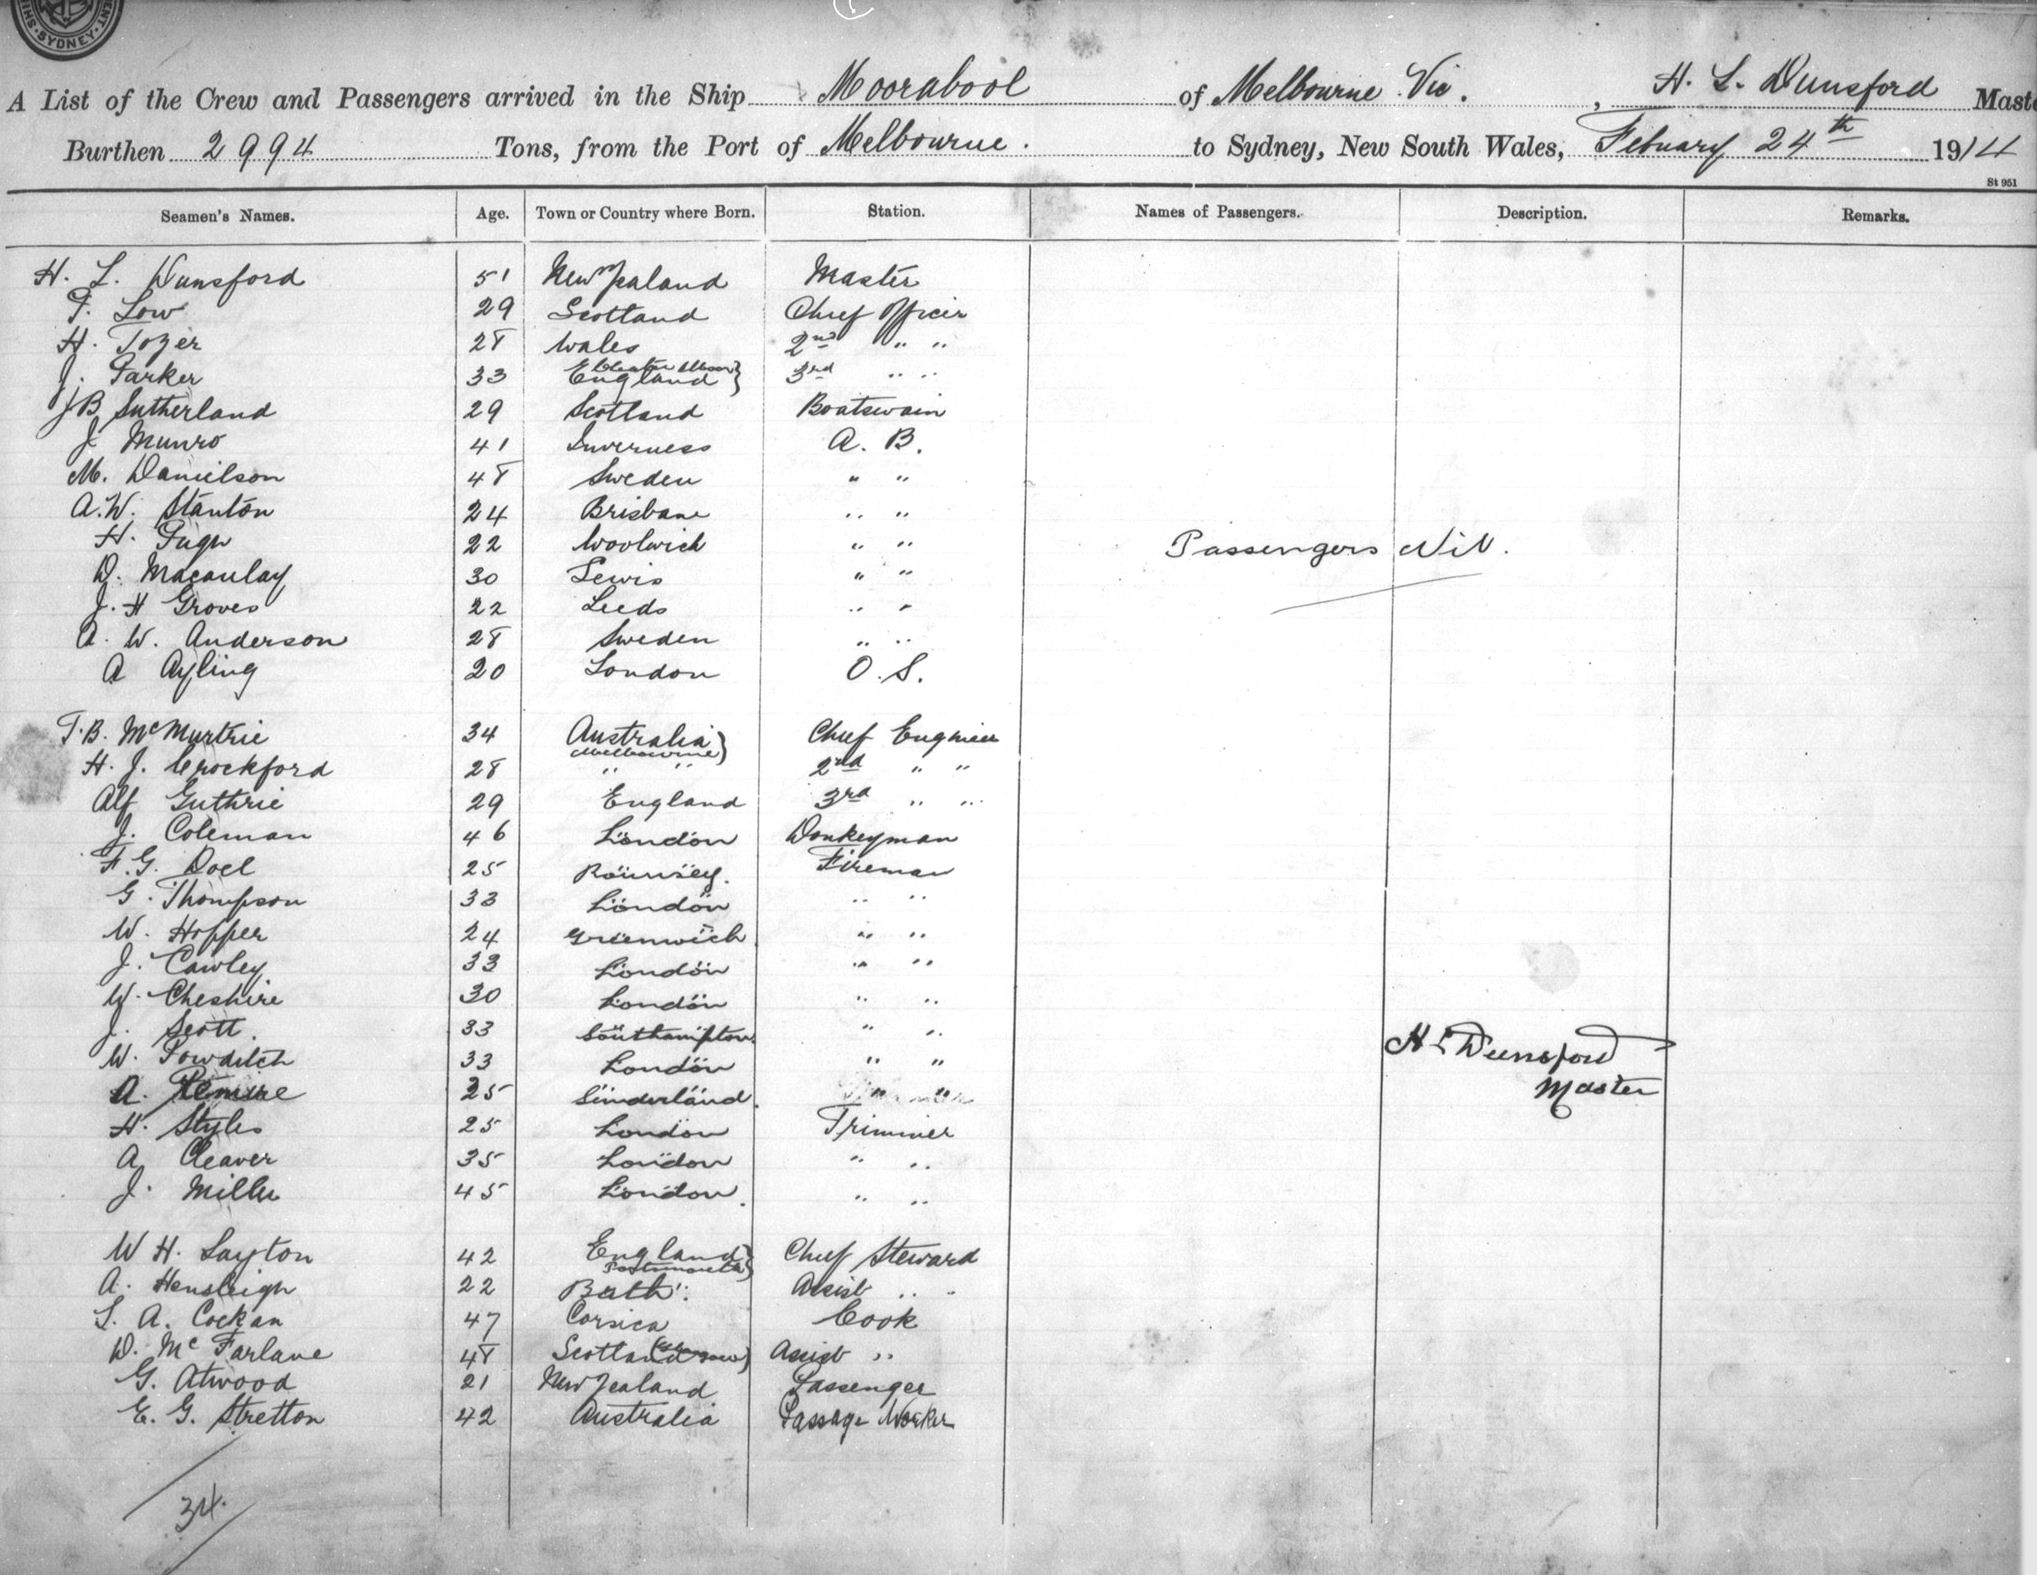 SYDNEY
A List of the Crew and Passengers arrived in the Ship Moorabool of Melbourne Vic. , H. L. Dunsford Maste
Burthen 2994 Tons, from the Port of Melbourne. to Sydney, New South Wales, Febuary 24th 1914
St 951
Seamen's Names. Age. Town or Country where Born. Station. Names of Passengers. Description. Remarks.
H. L. Dunsford 51 New Zealand Master
F. Low 29 Scotland Chief Officer
H. Tozer 28 Wales 2nd " "
J. Parker 33 England Cleator Moor } 3rd " "
J B Sutherland 29 Scotland Boatswain
J Munro 41 Inverness A. B.
M. Danielson 48 Sweden " "
A. W. Stanton 24 Brisbane " "
H. Pugh 22 Woolwich " " Passengers Nil.
D. Macaulay 30 Lewis " "
J. H Groves 22 Leeds " "
A. W. Anderson 28 Sweden " "
A Ayling 20 London O. S.
T. B. McMurtrie 34 Australia Melbourne } Chief Engineer
H. J. Crockford 28 " " 2nd " "
Alf Guthrie 29 England 3rd " "
J. Coleman 46 London Donkeyman
F. G. Doel 25 Romsey. Fireman
G. Thompson 33 London " "
W. Hopper 24 Greenwich " "
J. Cawley 33 London " "
W. Cheshire 30 London " "
J. Scott. 33 Southampton " "
H L Dunsford
Master
W. Powditch 33 London " "
A. 25 Sunderland.
H. Styles 25 London Trimmer
A Cleaver 35 London " "
J. Miller 45 London. " "
W H. Layton 42 England Portsmouth } Chief Steward
A. Hensleigh 22 Bath " Assist " "
S. A. Cockan 47 Corsica Cook
D. Mc Farlane 48 Scotland (Glasgow) Assist "
G. Atwood 21 New Zealand Passenger
E. G. Stretton 42 Australia Passage Worker
34.